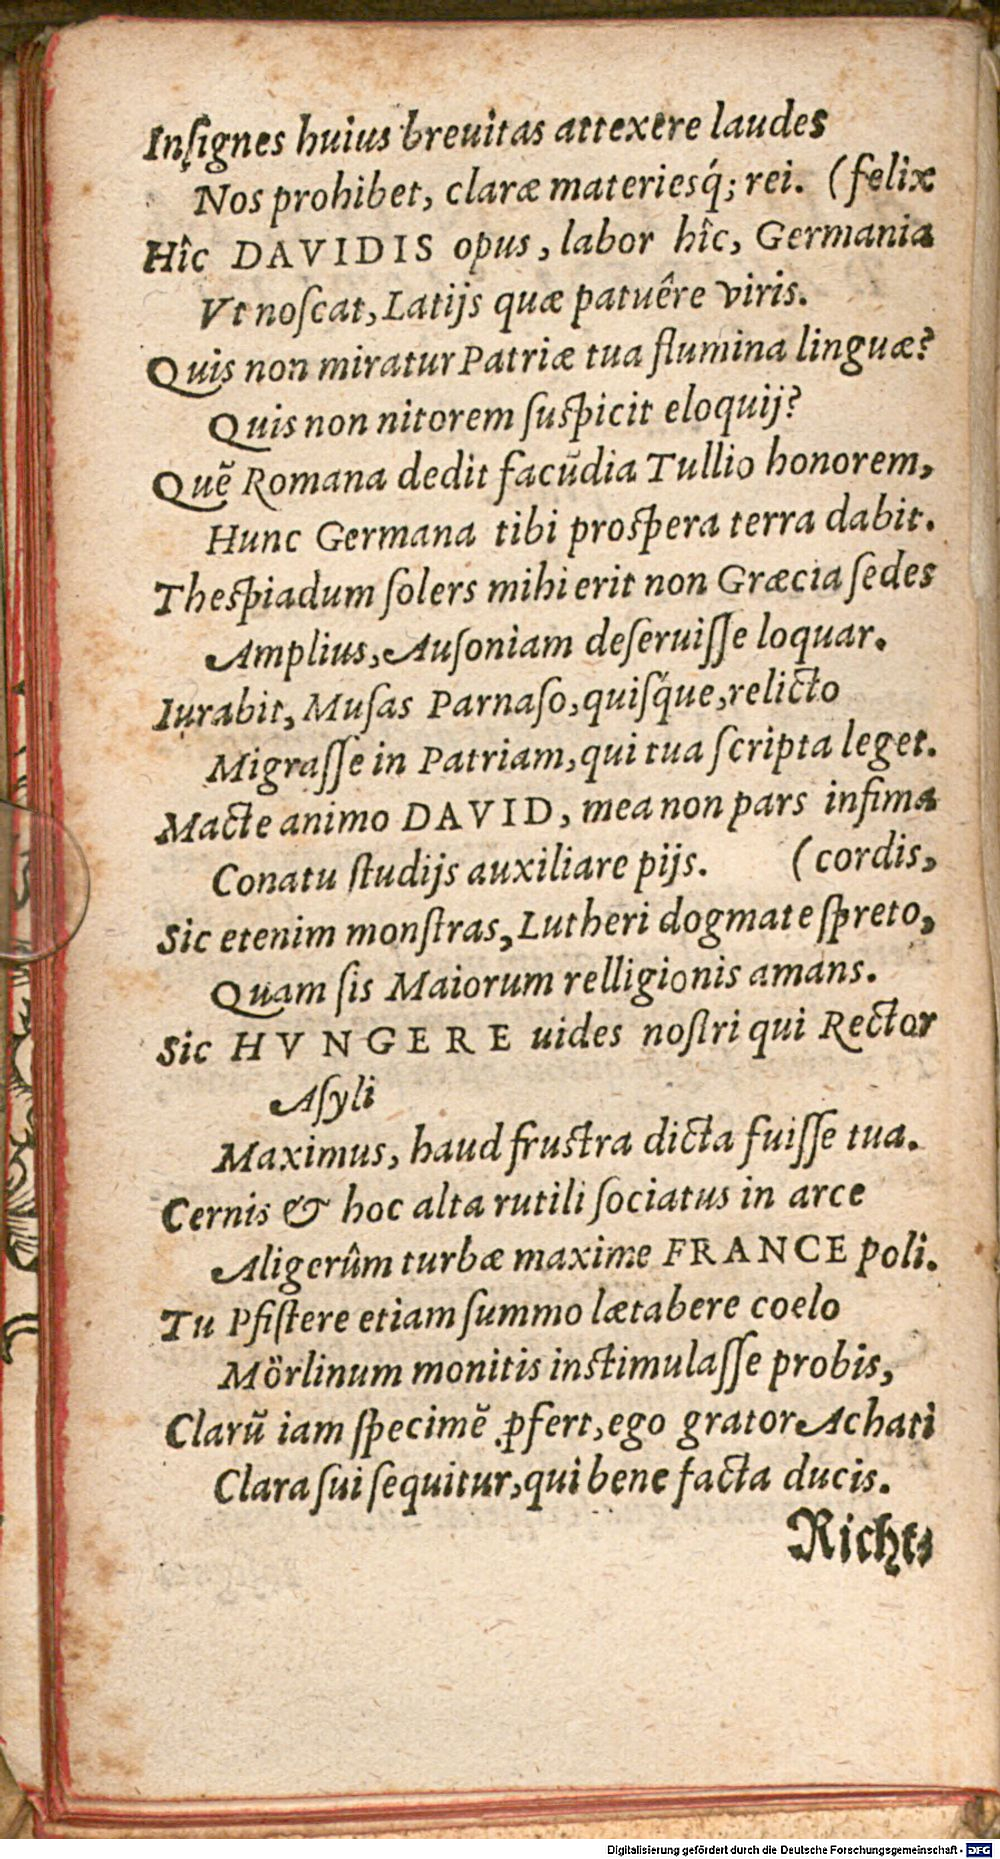 Inſignes huius breuitas attexere laudes
Nos prohibet, claræ materiesq́; rei. (felix
Hîc DAVIDIS opus, labor hîc, Germania
Vt noſcat, Latijs quæ patuêre viris.
Quis non miratur Patriæ tua flumina linguæ?
Quis non nitorem ſuſpicit eloquij?
Quẽ Romana dedit facũdia Tullio honorem,
Hunc Germana tibi proſpera terra dabit.
Theſpiadum ſolers mihi erit non Græcia ſedes
Amplius, Auſoniam deſeruiſſe loquar.
Iurabit, Muſas Parnaſo, quiſq́ue, relicto
Migraſſe in Patriam, qui tua ſcripta leget.
Macte animo DAVID, mea non pars infima
Conatu ſtudijs auxiliare pijs. (cordis,
Sic etenim monſtras, Lutheri dogmate ſpreto,
Quam ſis Maiorum relligionis amans.
Sic HVNGERE uides noſtri qui Rector
Aſyli
Maximus, haud fruſtra dicta fuiſſe tua.
Cernis & hoc alta rutili ſociatus in arce
Aligerûm turbæ maxime FRANCE poli.
Tu Pfiſtere etiam ſummo lætabere coelo
Mörlinum monitis inſtimulaſſe probis,
Clarũ iam ſpecimẽ ꝓfert, ego grator Achati
Clara ſui ſequitur, qui bene facta ducis.
Richts
Digitalisierung gefördert durch die Deutsche Forschungsgemeinschaft - DFG